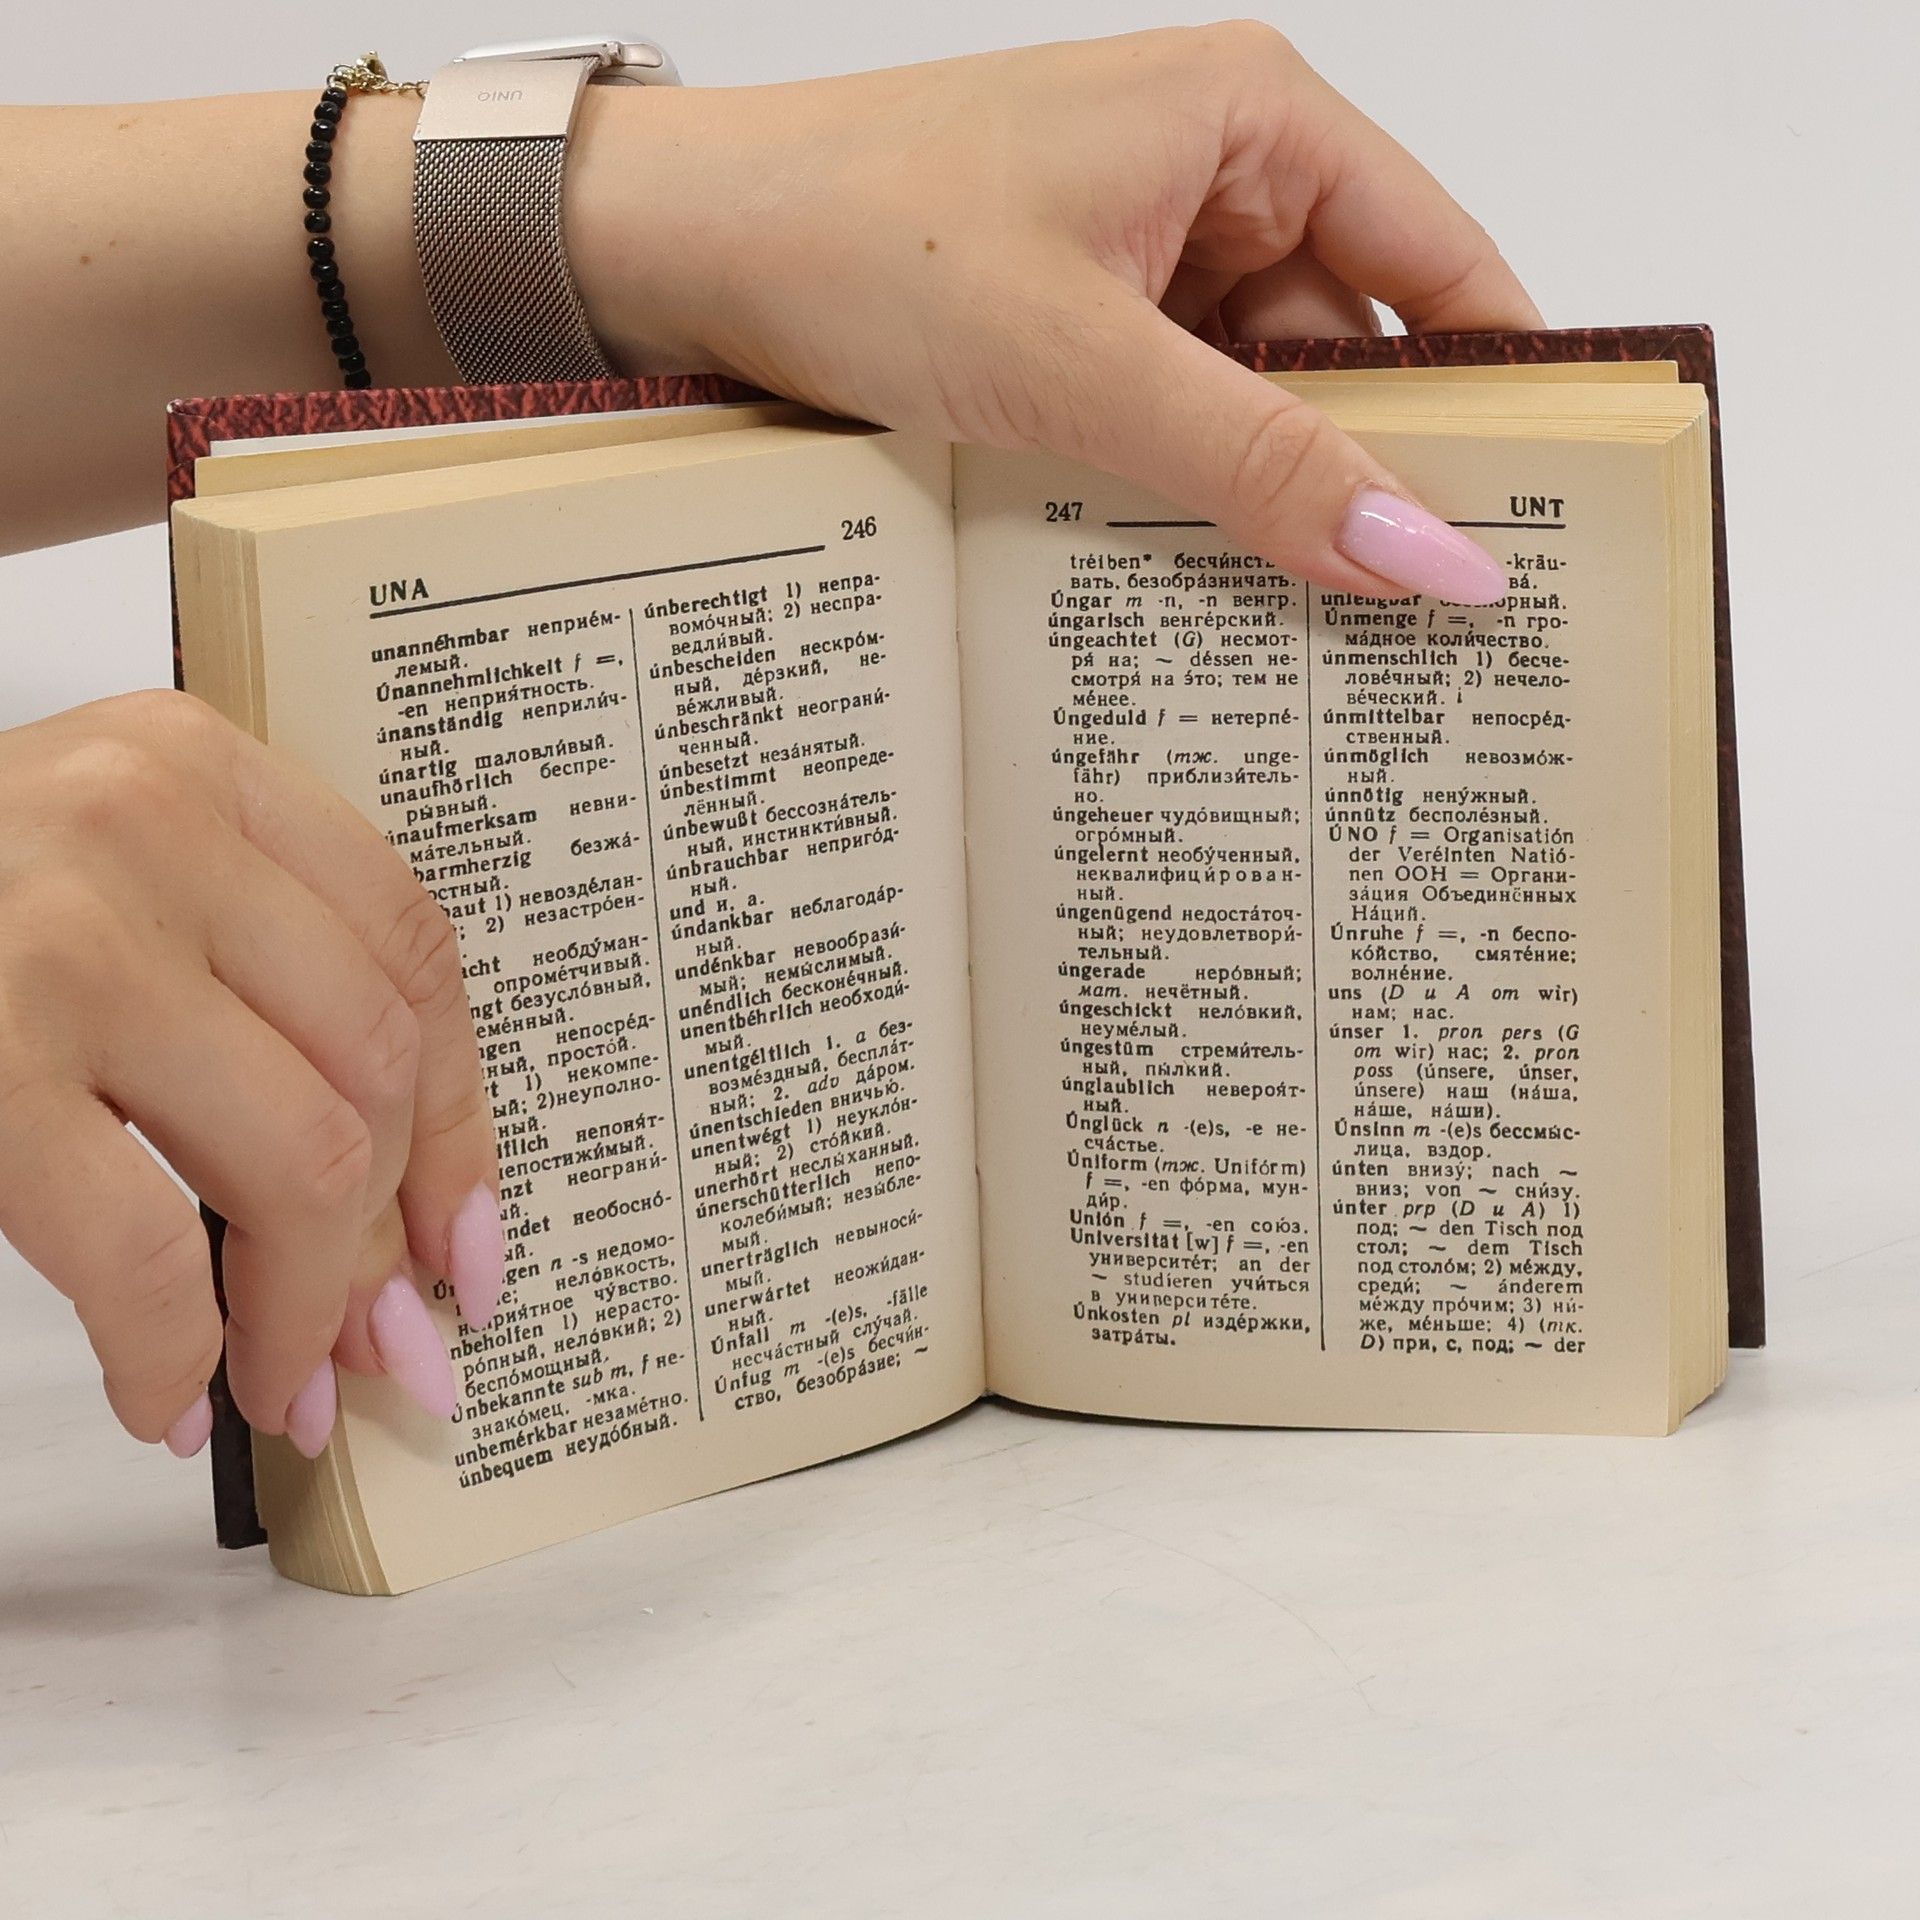 UNIQ
UNA
246
unannéhmbar неприе́м-
лемый.
Únannehmlichkeit f =,
-en неприя́тность.
únanständig неприли́ч-
ный.
únartig шаловли́вый.
unaufhörlich беспре-
ры́вный.
únaufmerksam невни-
ма́тельный.
barmherzig безжа́-
остный.
baut 1) невозде́лан-
; 2) незастро́ен-
acht необду́ман-
опроме́тчивый.
ngt безусло́вный,
еме́нный.
gen непосре́д-
ный, просто́й.
t 1) некомпе-
ый; 2) неуполно-
ный.
iflich непоня́т-
непостижи́мый.
nzt неограни́-
ый.
ndet необосно́-
ый.
gen n -s недомо-
е; нело́вкость,
неприя́тное чу́вство.
nbeholfen 1) нерасто-
ро́пный, нело́вкий; 2)
беспо́мощный.
Únbekannte sub m, f не-
знако́мец, -мка.
unbemérkbar незаме́тно.
únbequem неудо́бный.
únberechtigt 1) непра-
вомо́чный; 2) неспра-
ведли́вый.
únbescheiden нескро́м-
ный, де́рзкий, не-
ве́жливый.
únbeschränkt неограни́-
ченный.
únbesetzt неза́нятый.
únbestimmt неопреде-
лённый.
únbewußt бессозна́тель-
ный, инстинкти́вный.
únbrauchbar неприго́д-
ный.
und и, а.
úndankbar неблагода́р-
ный.
undénkbar невообрази́-
мый; немы́слимый.
unéndlich бесконе́чный.
unentbéhrlich необходи́-
мый.
unentgéltlich 1. a без-
возме́здный, беспла́т-
ный; 2. adv да́ром.
únentschieden вничью́.
unentwégt 1) неукло́н-
ный; 2) сто́йкий.
unerhört неслы́ханный.
únerschütterlich непо-
колеби́мый; незы́бле-
мый.
unerträglich невыноси́-
мый.
unerwártet неожи́дан-
ный.
Únfall m -(e)s, -fälle
несча́стный слу́чай.
Únfug m -(e)s бесчи́н-
ство, безобра́зие; ~
247
UNT
tréiben* бесчи́нст
вать, безобра́зничать.
Úngar m -n, -n венгр.
úngarisch венге́рский.
úngeachtet (G) несмот-
ря́ на; ~ déssen не-
смотря́ на э́то; тем не
ме́нее.
Úngeduld f = нетерпе́-
ние.
úngefähr (тж. unge-
fähr) приблизи́тель-
но.
úngeheuer чудо́вищный;
огро́мный.
úngelernt необу́ченный,
неквалифици́рован-
ный.
úngenügend недоста́точ-
ный; неудовлетвори́-
тельный.
úngerade неро́вный;
мат. нечётный.
úngeschickt нело́вкий,
неуме́лый.
úngestüm стреми́тель-
ный, пы́лкий.
únglaublich невероя́т-
ный.
Únglück n -(e)s, -e не-
сча́стье.
Úniform (тж. Unifórm)
f =, -en фо́рма, мун-
ди́р.
Unión f =, -en сою́з.
Universität [w] f =, -en
университе́т; an der
~ studieren учи́ться
в университе́те.
Únkosten pl изде́ржки,
затра́ты.
-kräu-
ва́.
unleugbar
Únmenge f =, -n гро-
ма́дное коли́чество.
únmenschlich 1) бесче-
лове́чный; 2) нечело-
ве́ческий.
únmittelbar непосре́д-
ственный.
únmöglich невозмо́ж-
ный.
únnötig нену́жный.
únnütz бесполе́зный.
ÚNO f = Organisatión
der Veréinten Natió-
nen ООН = Органи-
за́ция Объединённых
На́ций.
Únruhe f =, -n беспо-
ко́йство, смяте́ние;
волне́ние.
uns (D и A от wir)
нам; нас.
únser 1. pron pers (G
от wir) нас; 2. pron
poss (únsere, únser,
únsere) наш (на́ша,
на́ше, на́ши).
Únsinn m -(e)s бессмы́с-
лица, вздор.
únten внизу́; nach ~
вниз; von ~ сни́зу.
únter prp (D и A) 1)
под; ~ den Tisch под
стол; ~ dem Tisch
под столо́м; 2) ме́жду,
среди́; ~ ánderem
ме́жду про́чим; 3) ни́-
же, ме́ньше; 4) (тк.
D) при, с, под; ~ der